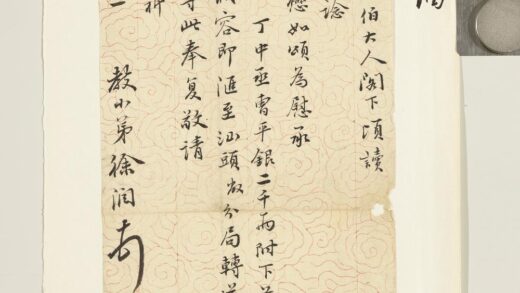 伯大人閣下頃讀
諗
懋如頌為慰承
丁中丞曹平銀二千兩附下
容即滙至汕頭敝分局轉
此奉复敬請
教小弟徐润